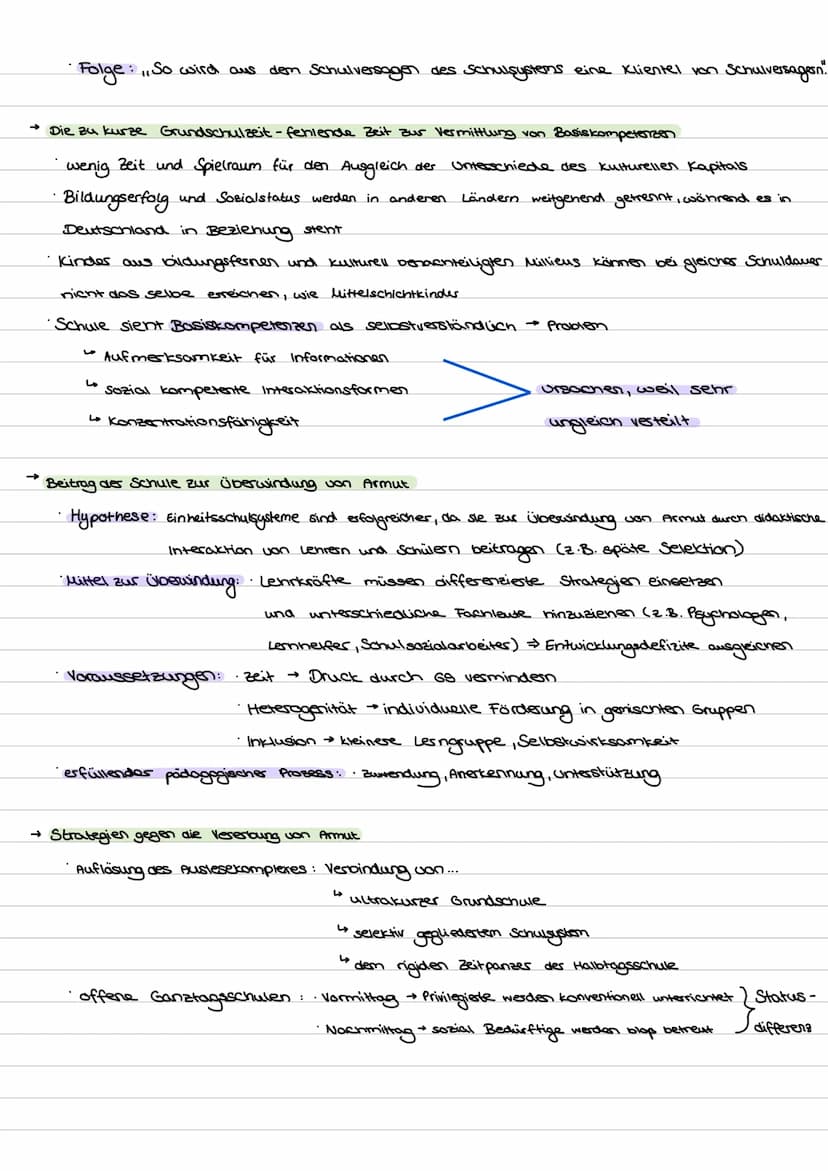 · Folge: „So wird aus dem Schulversagen des Schulsystems eine Klientel von Schulversagen".
→ Die zu kurze Grundschulzeit - fehlende Zeit zur Vermittlung von Basiskompetenzen
· wenig Zeit und Spielraum für den Ausgleich der Unterschiede des kulturellen Kapitals
· Bildungserfolg und Sozialstatus werden in anderen Ländern weitgehend getrennt, während es in
Deutschland in Beziehung steht
· Kinder aus bildungsfernen und kulturell benachteiligten Milieus können bei gleicher Schuldauer
nicht das selbe erreichen, wie Mittelschichtkinder
· Schule sieht Basiskompetenzen als selbstverständlich → Problem
↳ Aufmerksamkeit für Informationen
↳ sozial kompetente Interaktionsformen
↳ Konzentrationsfähigkeit
Ursachen, weil sehr
ungleich verteilt
→ Beitrag der Schule zur Überwindung von Armut
· Hypothese: Einheitsschulsysteme sind erfolgreicher, da sie zur Überwindung von Armut durch didaktische
Interaktion von Lehrern und Schülern beitragen (z.B. späte Selektion)
· Mittel zur Überwindung: · Lehrkräfte müssen differenzierte Strategien einsetzen
und unterschiedliche Fachleute hinzuziehen (z.B. Psychologen,
Lernhelfer, Schulsozialarbeiter) ⇒ Entwicklungsdefizite ausgleichen
· Voraussetzungen: · Zeit → Druck durch G8 vermindern
· Heterogenität → individuelle Förderung in gemischten Gruppen
· Inklusion → kleinere Lerngruppe, Selbstwirksamkeit
· erfüllender pädagogischer Prozess: · Zuwendung, Anerkennung, Unterstützung
→ Strategien gegen die Vererbung von Armut
· Auflösung des Auslesekomplexes: Verbindung von...
↳ ultrakurzer Grundschule
↳ selektiv gegliedertem Schulsystem
↳ dem rigiden Zeitpanzer der Halbtagsschule
· offene Ganztagsschulen: · Vormittag → Privilegierte werden konventionell unterrichtet } Status-
· Nachmittag → sozial Bedürftige werden bloß betreut differenz